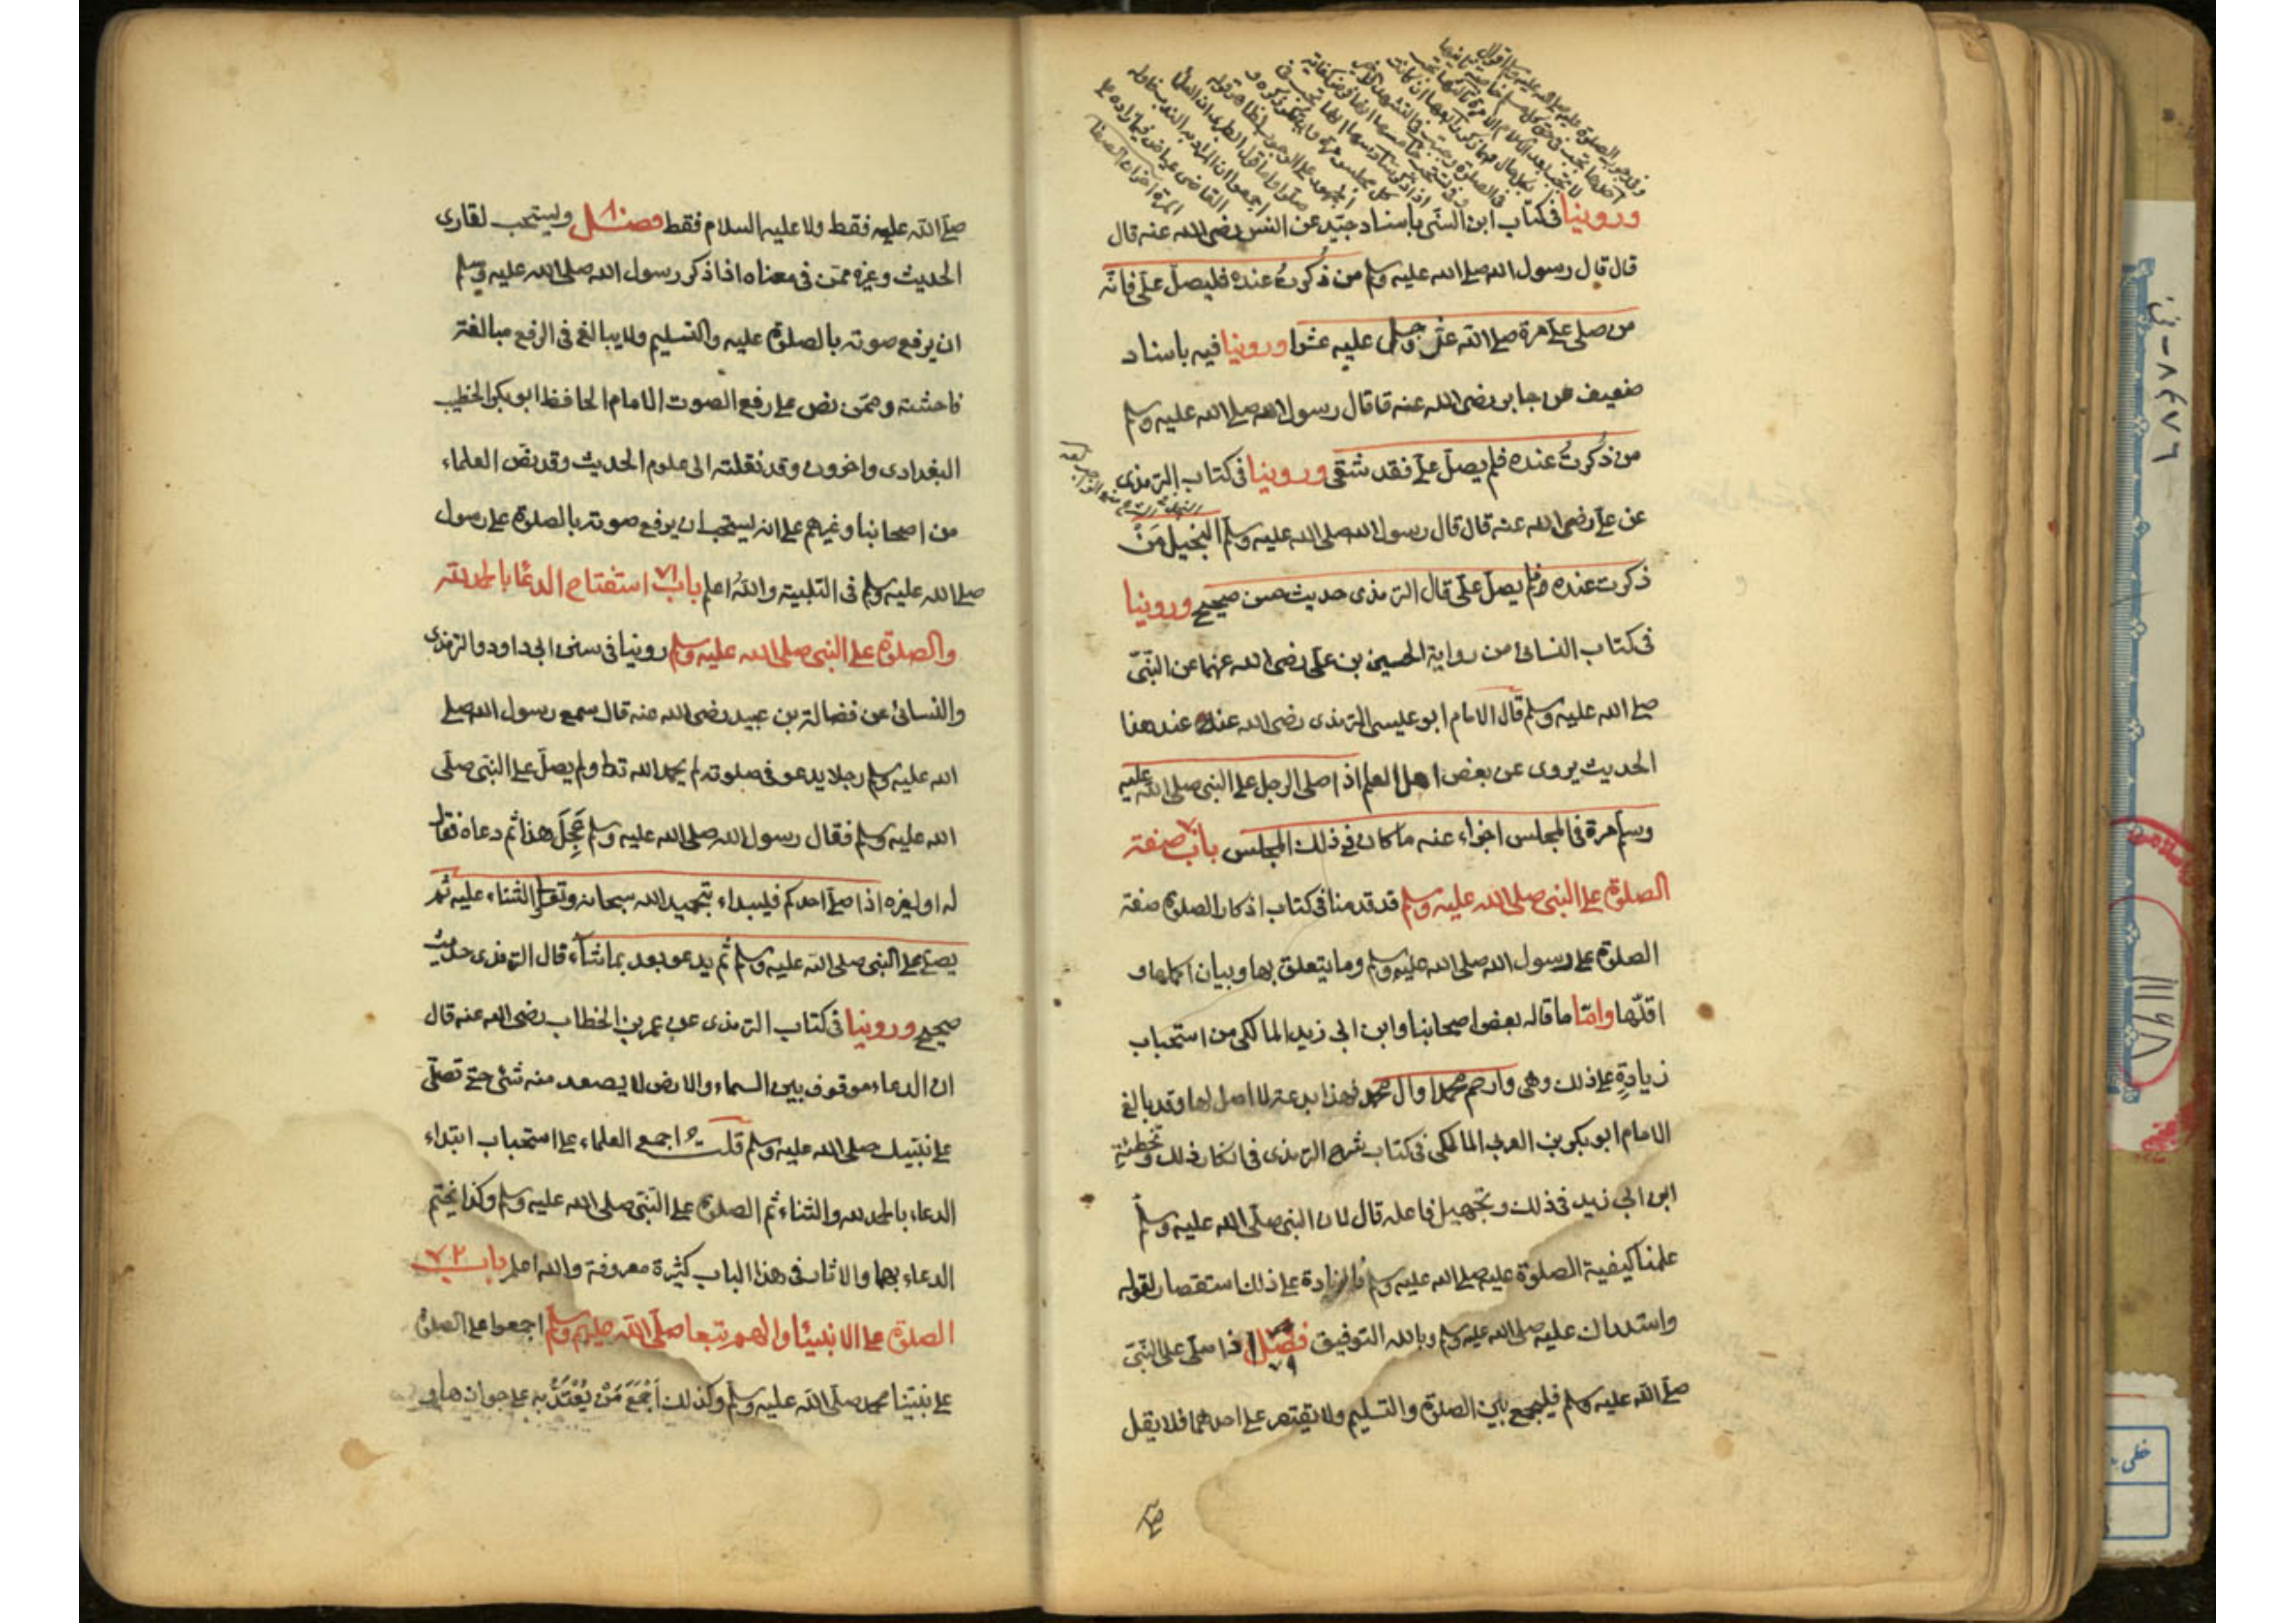 وروينا في كتاب ابن السني باسناد جيد عن انس رضى الله عنه قال
قال قال رسول الله صلى الله عليه وسلم من ذُكرتُ عنده فليصلّ علىّ فانّه
من صلى علىّ مرة صلى الله عزّ وجل عليه عشرا وروينا فيه باسناد
ضعيف عن جابر رضى الله عنه قا قال رسول الله صلى الله عليه وسلم
من ذُكرتُ عنده فلم يصلّ علىّ فقد شقى وروينا فى كتاب الترمذى
عن على رضى الله عنه قال قال رسول الله صلى الله عليه وسلم البخيل مَنْ
ذكرت عنده ولم يصلّ علىّ قال الترمذى حديث حسن صحيح وروينا
فى كتاب النسائى من رواية الحسين بن على رضى الله عنهما عن النّبىّ
صلى الله عليه وسلم قال الامام ابو عيسى الترمذى رضى الله عنه عند هذا
الحديث يروى عن بعض اهل العلم اذا صلى الرجل على النبى صلى الله عليه
وسلم مرة فى المجلس اجزاء عنه ما كان فى ذلك المجلس باب صفة
الصلوة على النبى صلى الله عليه وسلم قد قدمنا فى كتاب اذكار الصلوة صفة
الصلوة على رسول الله صلى الله عليه وسلم وما يتعلق بها وبيان اكملها و
اقلّها وامّا ما قاله بعض اصحابنا وابن ابى زيد المالكى من استحباب
زيادةٍ على ذلك وهى وارحم محمدا وآل محمد فهذا بدعة لا اصل لها وقد بالغ
الامام ابو بكر بن العربى المالكى فى كتاب شرح الترمذى فى انكار ذلك وتخطئة
ابن ابى زيد فى ذلك وتجهيل فاعله قال لان النبى صلّى الله عليه وسلّم
علمنا كيفية الصلوة عليه صلى الله عليه وسلم فالزيادة على ذلك استقصار لقوله
واستدراك عليه صلى الله عليه وسلم وبالله التوفيق فصل اذا صلّى على النّبىّ
صلّى الله عليه وسلم فليجمع بين الصلوة والتسليم ولا يقتصر على احدهما فلا يقل
صلّى الله عليه فقط ولا عليه السلام فقط فصل ويستحب لقارى
الحديث وغيره ممّن فى معناه اذا ذكر رسول الله صلى الله عليه وسلم
ان يرفع صوته بالصلوة عليه والتسليم ولا يبالغ فى الرفع مبالغة
فاحشة وممّن نص على رفع الصوت الامام الحافظ ابو بكر الخطيب
البغدادى واخرون وقد نقلته الى علوم الحديث وقد نصّ العلماء
من اصحابنا وغيرهم على انه يستحب ان يرفع صوته بالصلوة على رسول
صلى الله عليه وسلم فى التلبية واللهُ اعلم باب ٧١ استفتاح الدعا بالحمد لله
والصلوة على النبى صلى الله عليه وسلم روينا فى سنن ابى داود والترمذى
والنسائى عن فضالة بن عبيد رضى الله عنه قال سمع رسول الله صلى
الله عليه وسلم رجلا يدعو فى صلوته لم يحمد الله تعا ولم يصلّ على النبى صلى
الله عليه وسلم فقال رسول الله صلى الله عليه وسلم عَجِلَ هذا ثم دعاه فقال
له او لغيره اذا صلّى احدكم فليبداء بتحميد الله سبحانه وتعالى والثناء عليه ثم
يصلى على النبى صلى الله عليه وسلم ثم يدعو بعد بما شآء قال الترمذى حديث
صحيح وروينا فى كتاب الترمذى عن عمر بن الخطاب رضى الله عنه قال
ان الدعاء موقوف بين السماء والارض لا يصعد منه شئ حتى تصلّى
على نبيّك صلى الله عليه وسلم قلت اجمع العلماء على استحباب ابتداء
الدعاء بالحمد لله والثناء ثم الصلوة على النّبىّ صلى الله عليه وسلم وكذا يختم
الدعاء بهما والاثار فى هذا الباب كثيرة معروفة والله اعلم باب ٧٢
الصلوة على الانبيا والهم تبعا صلّى الله عليهم وسلّم اجمعوا على الصلوة
على نبيّنا محمد صلّى الله عليه وسلّم وكذلك اَجْمَعَ مَنْ يُعْتَدُّ به على جوازها و